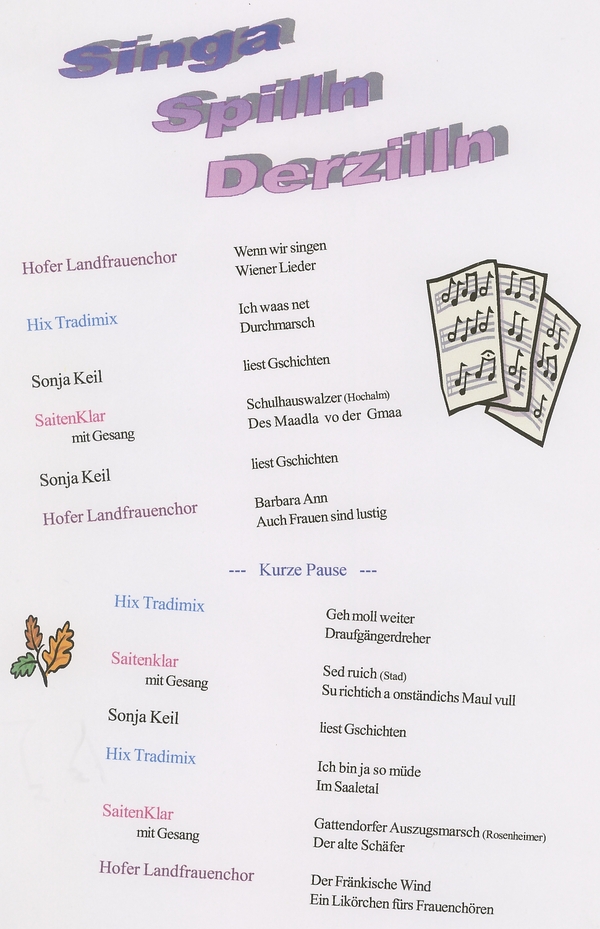 Singa
Spilln
Derzilln
Hofer Landfrauenchor
Wenn wir singen
Wiener Lieder
Hix Tradimix
Ich waas net
Durchmarsch
Sonja Keil
liest Gschichten
SaitenKlar
mit Gesang
Schulhauswalzer (Hochalm)
Des Maadla vo der Gmaa
Sonja Keil
liest Gschichten
Hofer Landfrauenchor
Barbara Ann
Auch Frauen sind lustig
--- Kurze Pause ---
Hix Tradimix
Geh moll weiter
Draufgängerdreher
Saitenklar
mit Gesang
Sed ruich (Stad)
Su richtich a onständichs Maul vull
Sonja Keil
liest Gschichten
Hix Tradimix
Ich bin ja so müde
Im Saaletal
SaitenKlar
mit Gesang
Gattendorfer Auszugsmarsch (Rosenheimer)
Der alte Schäfer
Hofer Landfrauenchor
Der Fränkische Wind
Ein Likörchen fürs Frauenchören